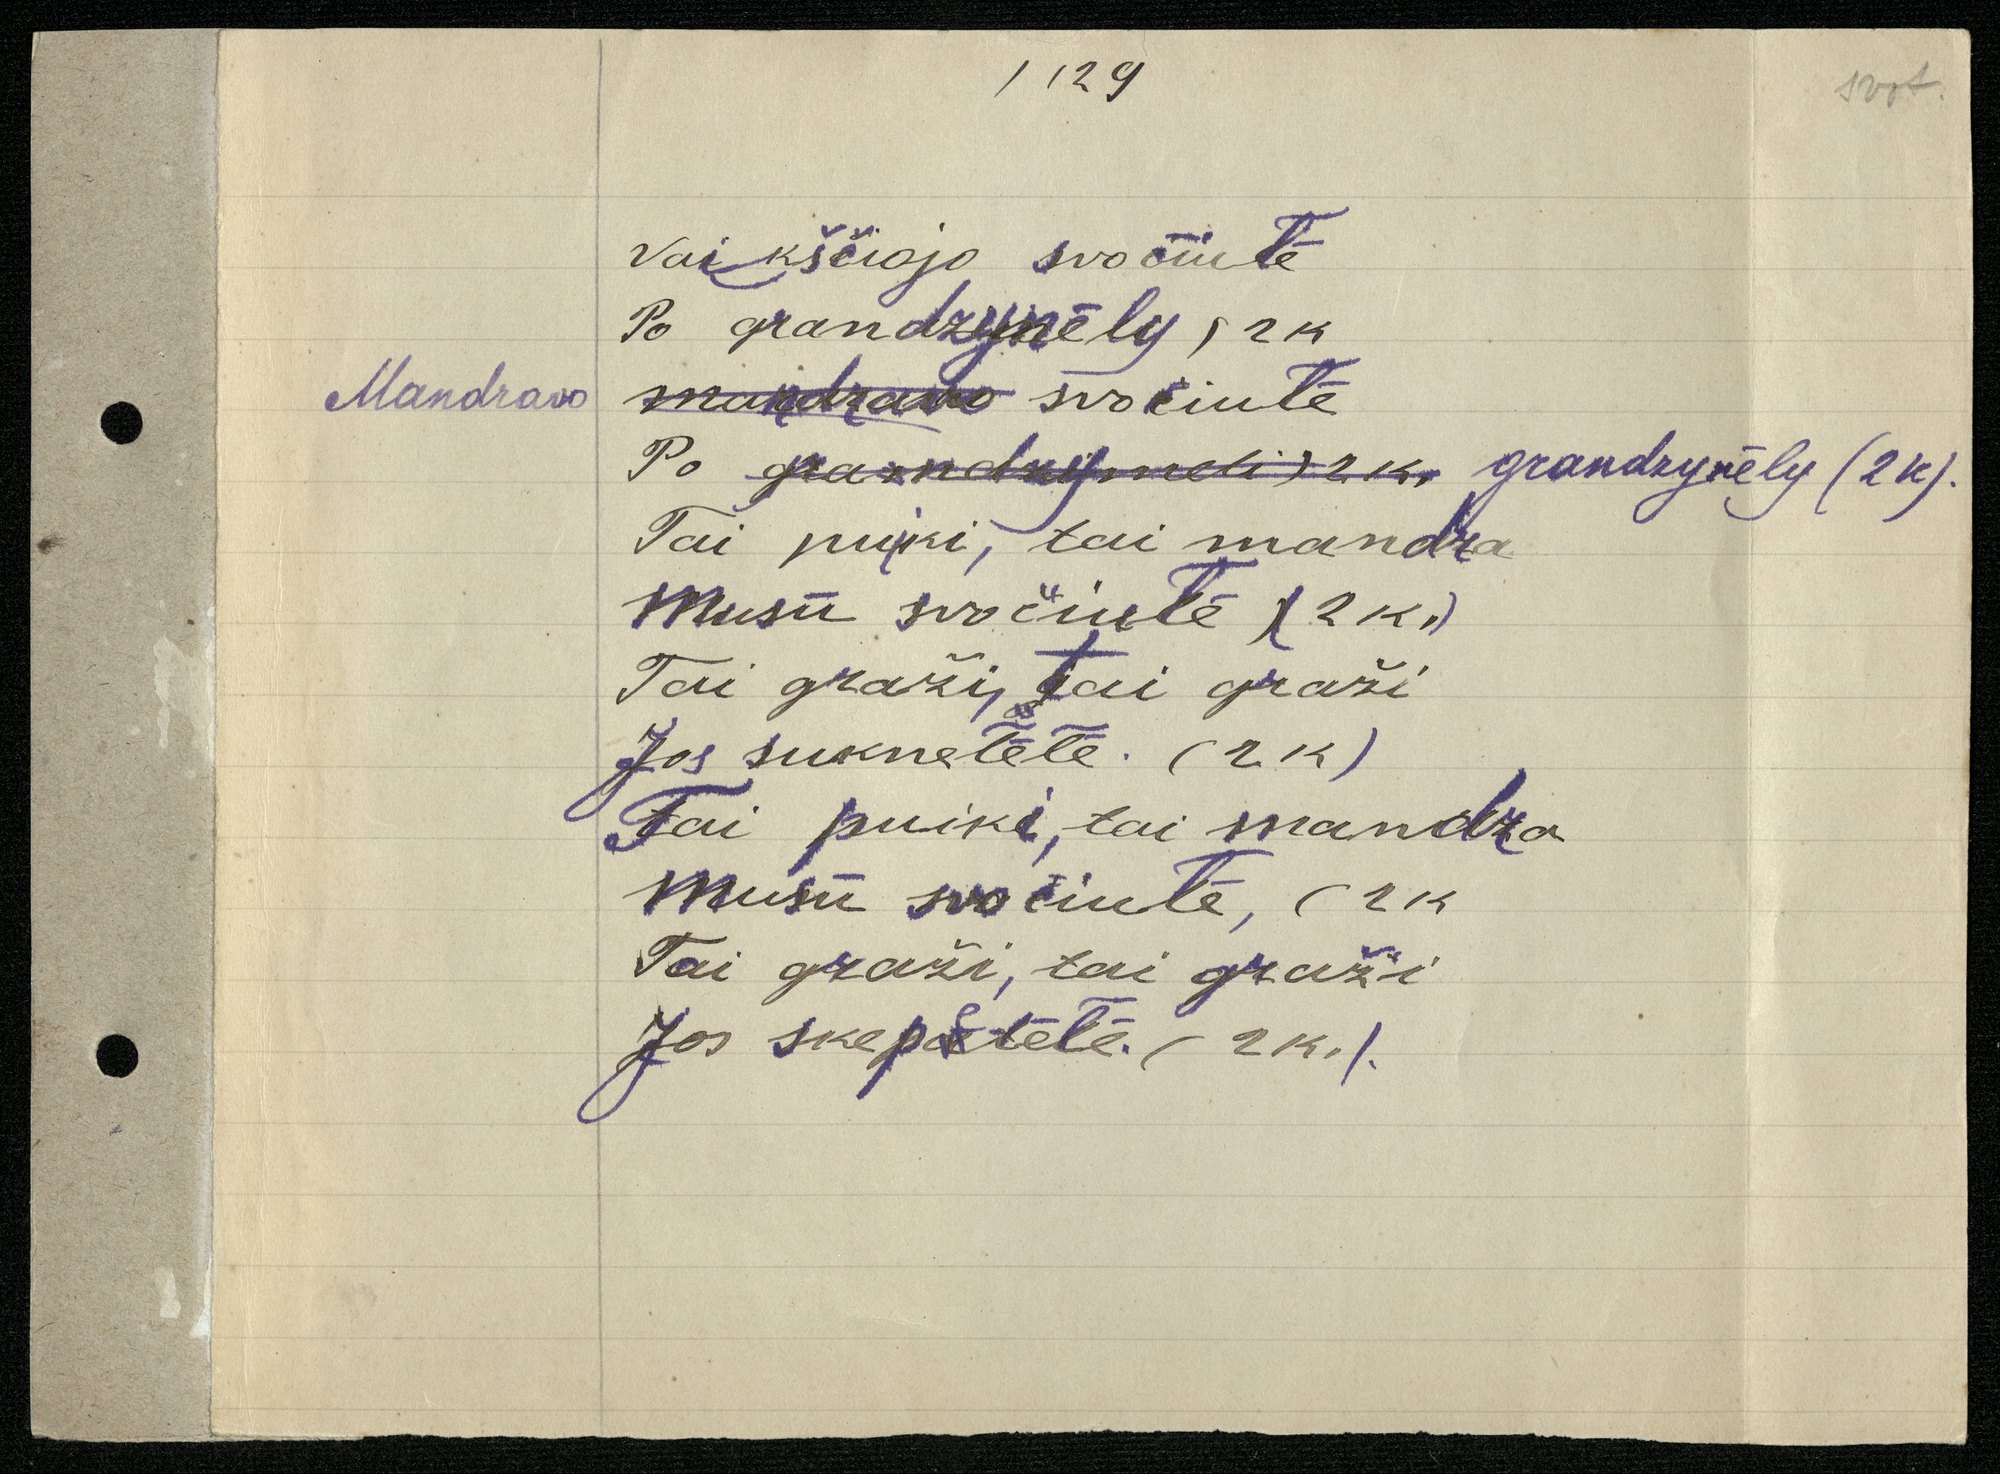 1129
svot.
Vaikščiojo svočiutė
Po grandzynėly, 2 k
Mandravo mandravo svočiutė
Po grandzymeli) 2 k. grandzynėly (2 k).
Tai puiki, tai mandra
Musū svočiutė (2 k.)
Tai graži, tai graži
Jos suknetėtė. (2 k)
Tai puiki, tai mandra
Musū svočiutė, (2 k
Tai graži, tai graži
Jos skepetėtė. (2 k.).